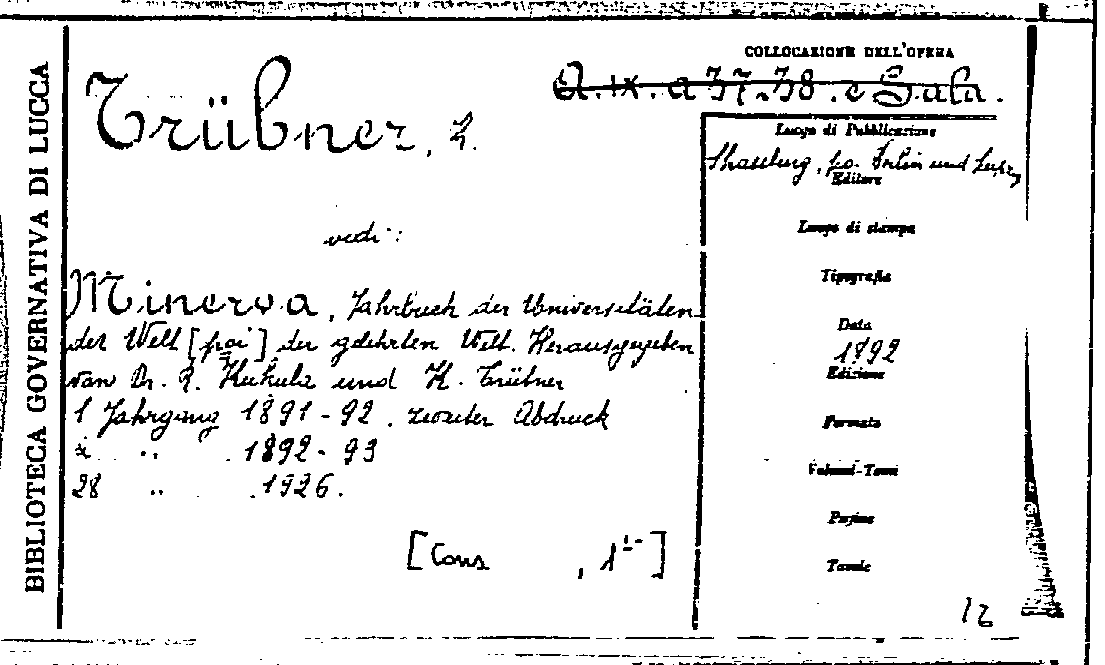 BIBLIOTECA GOVERNATIVA DI LUCCA
COLLOCAZIONE DELL'OPERA
A.IX.a 37-38.e Sala.
Trübner, K.
Luogo di Pubblicazione
Strassburg, po. Berlin und Leipzig
Editore
vedi:
Luogo di stampa
Tipografia
Minerva, Jahrbuch der Universitäten
der Welt [poi] der gelehrten Welt. Herausgegeben
von Dr. R. Kukula und K. Trübner
1 Jahrgang 1891-92. zweiter Abdruck
2 .. .. 1892-93
28 .. .1926.
Data
1892
Edizione
Formato
Volumi-Tomi
Pagine
Tavole
[Cons , 1]
12